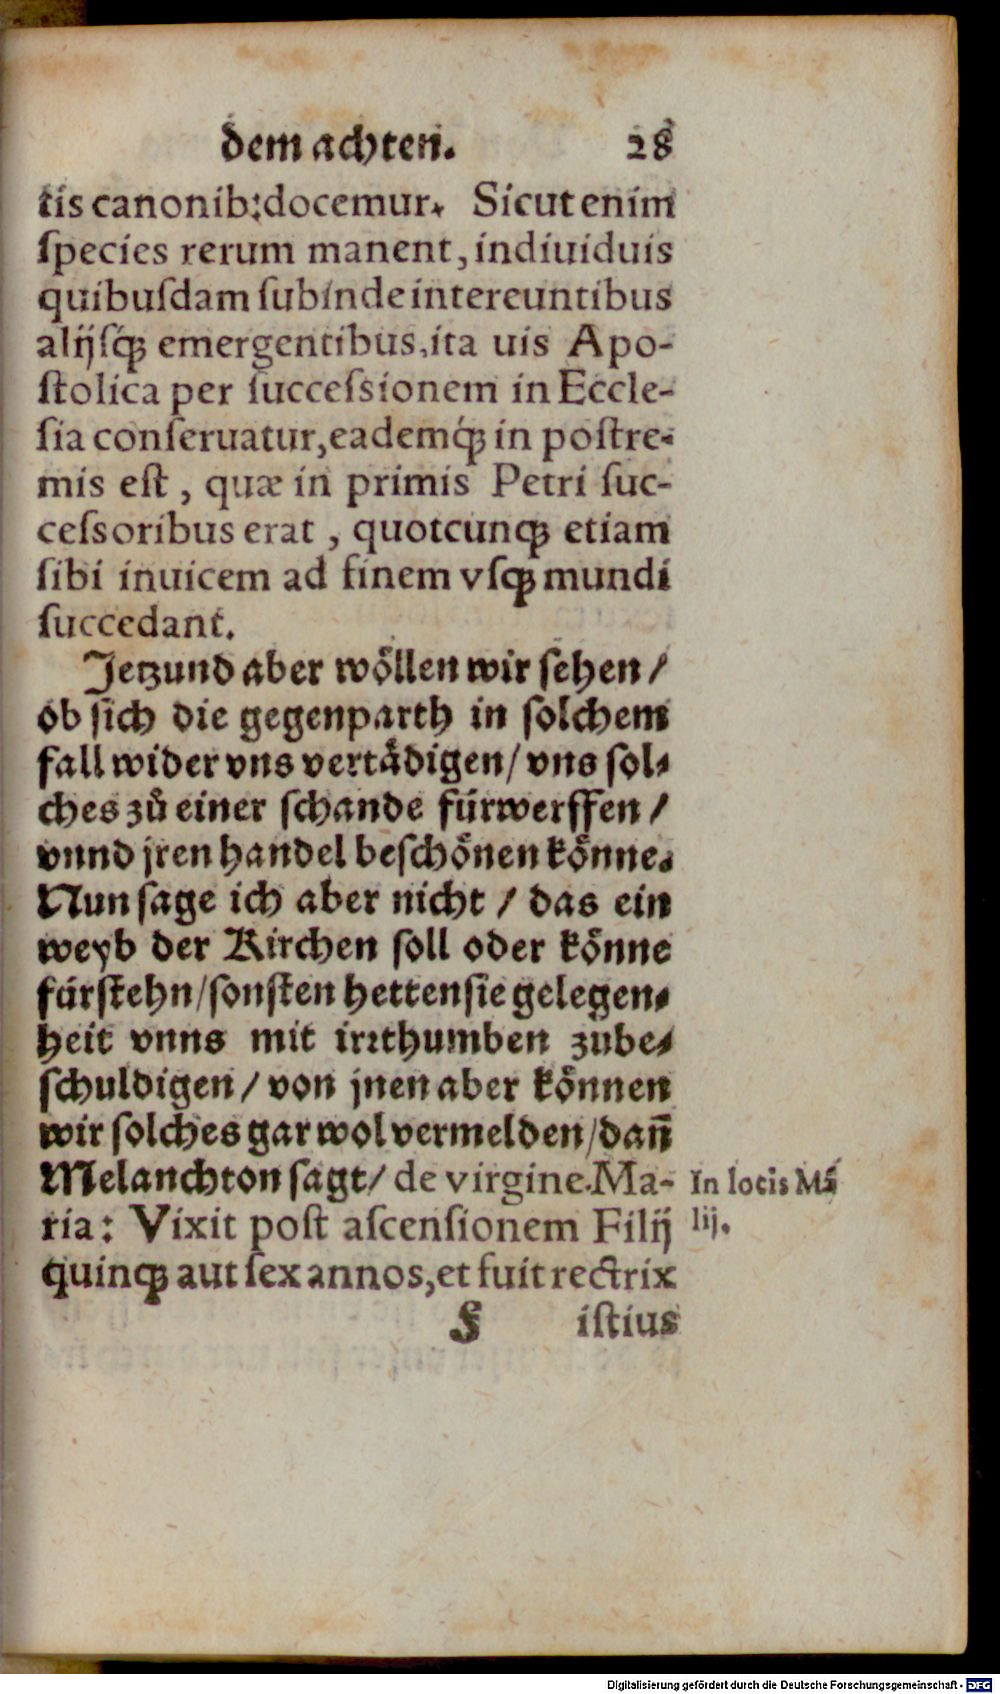 dem achten. 28
tis canonib:docemur. Sicut enim
ſpecies rerum manent, indiuiduis
quibuſdam ſubinde intereuntibus
alijſq́ꝫ emergentibus, ita uis Apo-
ſtolica per ſucceſsionem in Eccle-
ſia conſeruatur, eademq́ꝫ in poſtre-
mis eſt, quæ in primis Petri ſuc-
ceſsoribus erat, quotcunqꝫ etiam
ſibi inuicem ad finem vſqꝫ mundi
ſuccedant.
Jetzund aber woͤllen wir ſehen /
ob ſich die gegenparth in ſolchem
fall wider vns vertaͤdigen / vns ſol-
ches zů einer ſchande fürwerffen /
vnnd jren handel beſchoͤnen koͤnne.
Nun ſage ich aber nicht / das ein
weyb der Kirchen ſoll oder koͤnne
fürſtehn / ſonſten hetten ſie gelegen-
heit vnns mit irꝛthumben zube-
ſchuldigen / von jnen aber koͤnnen
wir ſolches gar wol vermelden / dañ
Melanchton ſagt / de virgine Ma-
ria: Vixit poſt aſcenſionem Filij
quinqꝫ aut ſex annos, et fuit rectrix
In locis Mā
lij.
F iſtius
Digitalisierung gefördert durch die Deutsche Forschungsgemeinschaft - DFG